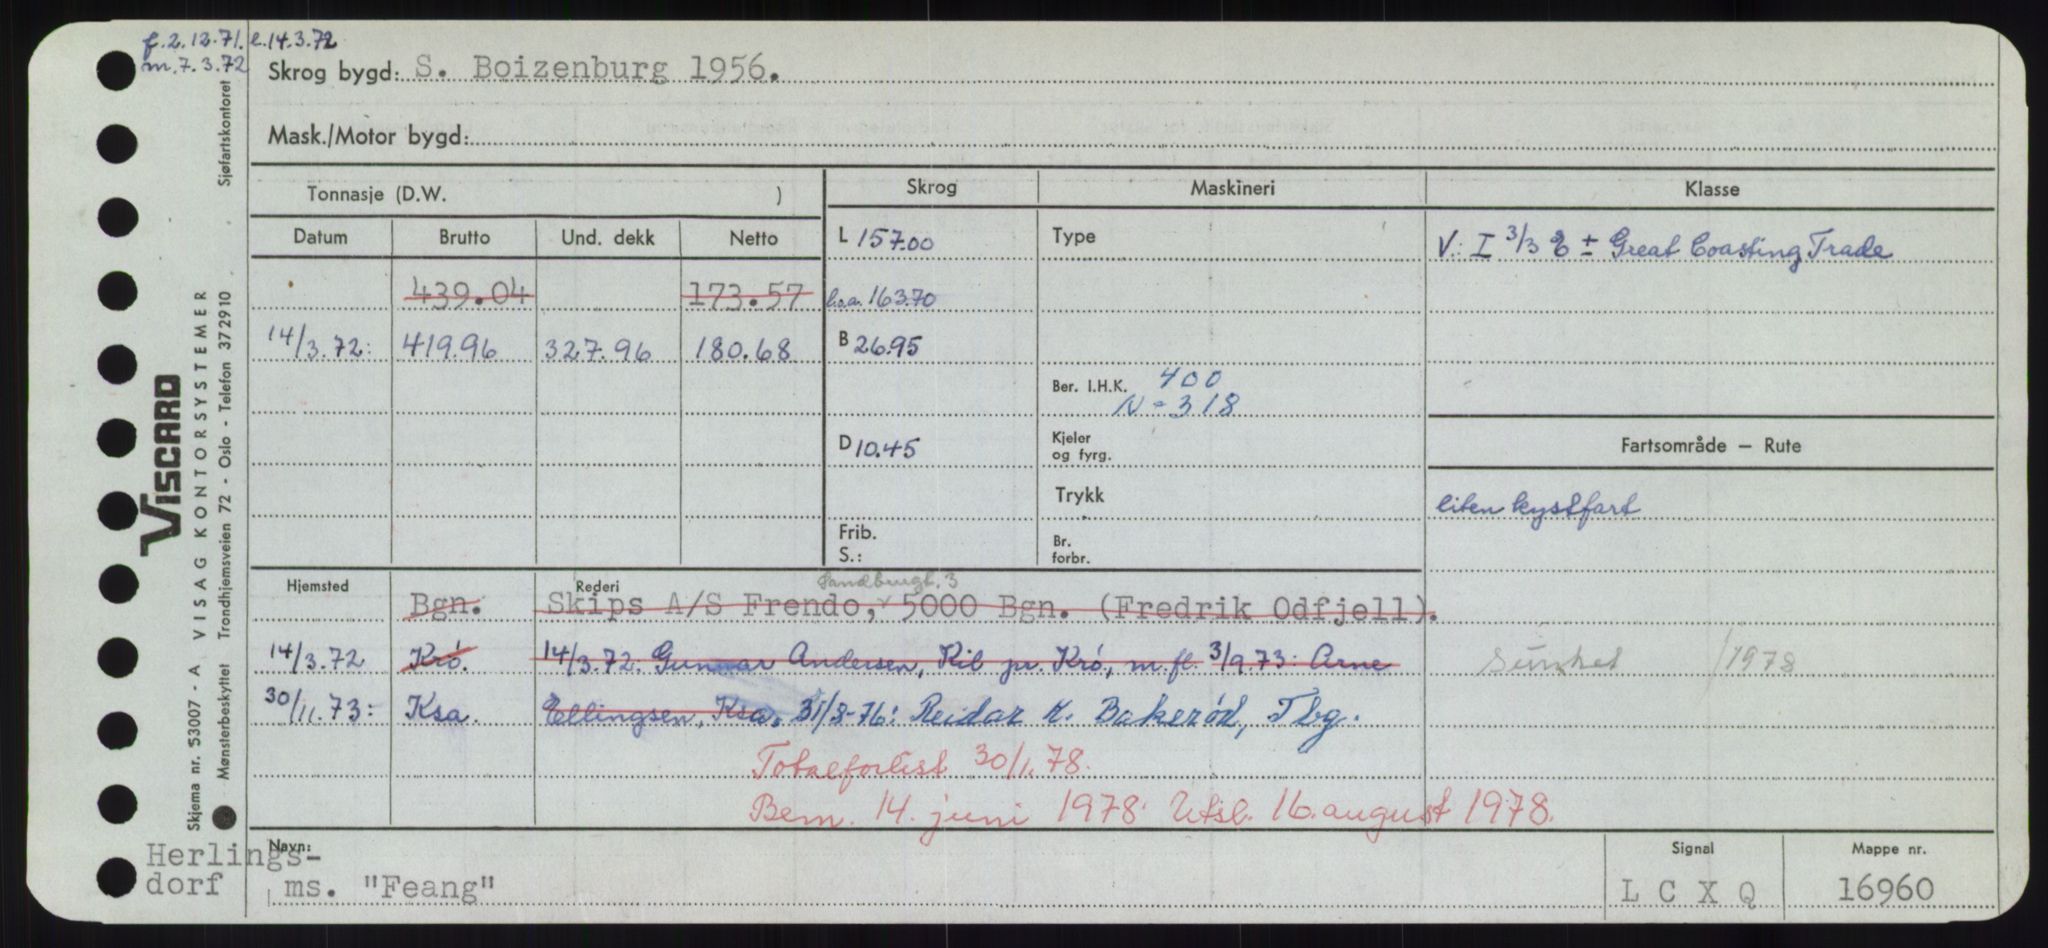 f. 2.12.71. e. 14.3.72
m. 7.3.72
Skrog bygd: S. Boizenburg 1956.
Mask./Motor bygd:
Tonnasje (D.W. )
Skrog Maskineri Klasse
Datum Brutto Und. dekk Netto
L 157.00 Type V: I 3/3 E ± Great Coasting Trade
439.04 173.57 l.o.a. 163.70
14/3.72: 419.96 327.96 180.68 B 26.95
Ber. I.H.K. 400
N = 318
D 10.45 Kjeler og fyrg. Fartsområde — Rute
Trykk liten kystfart
Frib.
S.: Br. forbr.
Hjemsted Rederi Sandbrugt. 3
Bgn. Skips A/S Frendo, 5000 Bgn. (Fredrik Odfjell).
14/3.72 Krø. 14/3.72: Gunnar Andersen, Kil pr. Krø, m.fl. 3/9.73: Arne
Sunket 1978
30/11.73: Ksa. Ellingsen, Ksa. 31/8-76: Reidar K. Bakerød, Tbg.
Totalforlist 30/1.78.
Bem. 14. juni 1978. Utsl. 16. august 1978.
Navn: Signal Mappe nr.
Herlings-
dorf
ms. "Feang" L C X Q 16960
VISCARD
Skjema nr. 53007 - A VISAG KONTORSYSTEMER
Mønsterbeskyttet Trondhjemsveien 72 - Oslo - Telefon 372910 Sjøfartskontoret